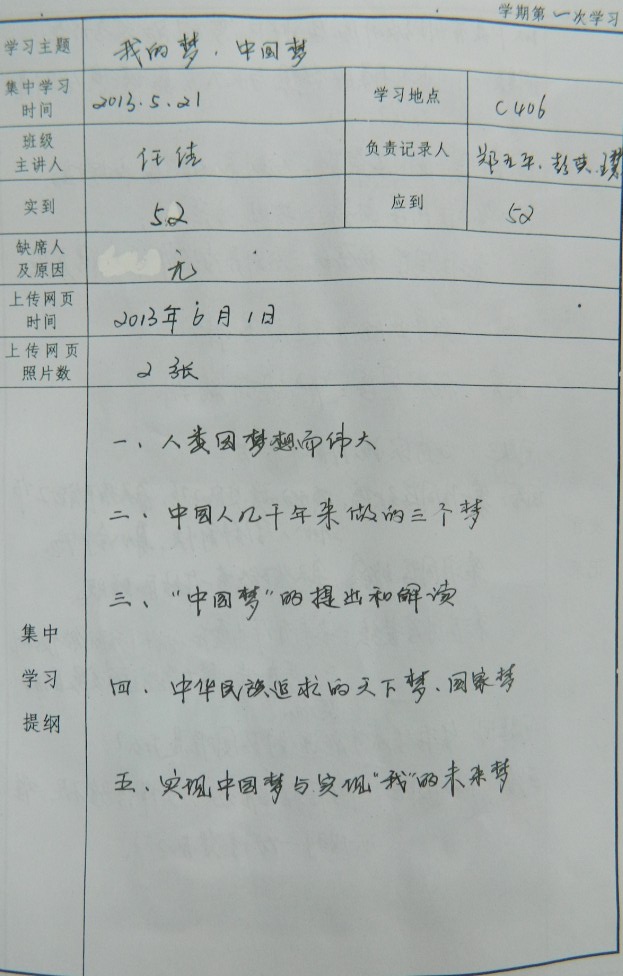 学期第一次学习
学习主题 我的梦、中国梦
集中学习时间 2013.5.21 学习地点 C406
班级主讲人 任佳 负责记录人 郑五平、彭英
实到 52 应到 52
缺席人及原因 无
上传网页时间 2013年6月1日
上传网页照片数 2张
集中学习提纲
一、人类因梦想而伟大
二、中国人几千年来做的三个梦
三、“中国梦”的提出和解读
四、中华民族追求的天下梦、国家梦
五、实现中国梦与实现“我”的未来梦